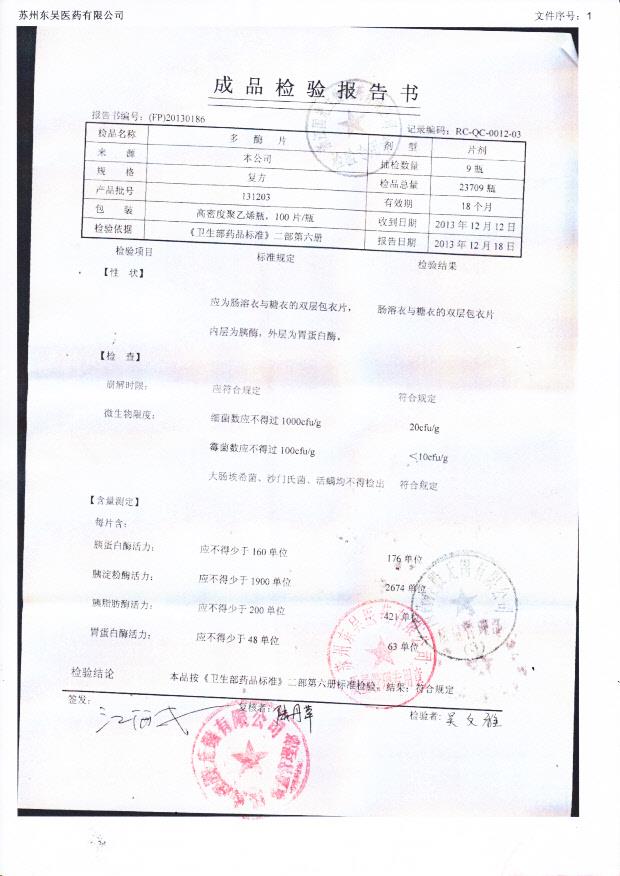 苏州东吴医药有限公司 文件序号：1
成品检验报告书
报告书编号：(FP)20130186 记录编码：RC-QC-0012-03
检品名称 多酶片 剂型 片剂
来源 本公司 抽检数量 9 瓶
规格 复方 检品总量 23709 瓶
产品批号 131203 有效期 18 个月
包装 高密度聚乙烯瓶，100 片/瓶 收到日期 2013 年 12 月 12 日
检验依据 《卫生部药品标准》二部第六册 报告日期 2013 年 12 月 18 日
检验项目 标准规定 检验结果
【性 状】
应为肠溶衣与糖衣的双层包衣片， 肠溶衣与糖衣的双层包衣片
内层为胰酶，外层为胃蛋白酶。
【检 查】
崩解时限： 应符合规定 符合规定
微生物限度： 细菌数应不得过 1000cfu/g 20cfu/g
霉菌数应不得过 100cfu/g <10cfu/g
大肠埃希菌、沙门氏菌、活螨均不得检出 符合规定
【含量测定】
每片含：
胰蛋白酶活力： 应不得少于 160 单位 176 单位
胰淀粉酶活力： 应不得少于 1900 单位 2674 单位
胰脂肪酶活力： 应不得少于 200 单位 421 单位
胃蛋白酶活力： 应不得少于 48 单位 63 单位
检验结论 本品按《卫生部药品标准》二部第六册标准检验，结果：符合规定
签发： 复核者： 陆丹苹 检验者： 吴文雅
苏州东吴医药有限公司